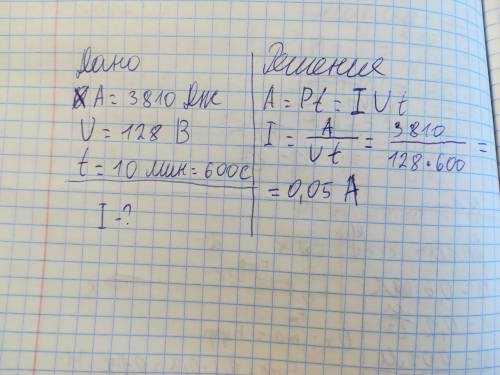 Дано
A = 3810 Дж
U = 128 В
t = 10 мин = 600с
I - ?
Решение
A = Pt = I U t
I = A / U t = 3810 / 128 · 600 =
= 0,05 A